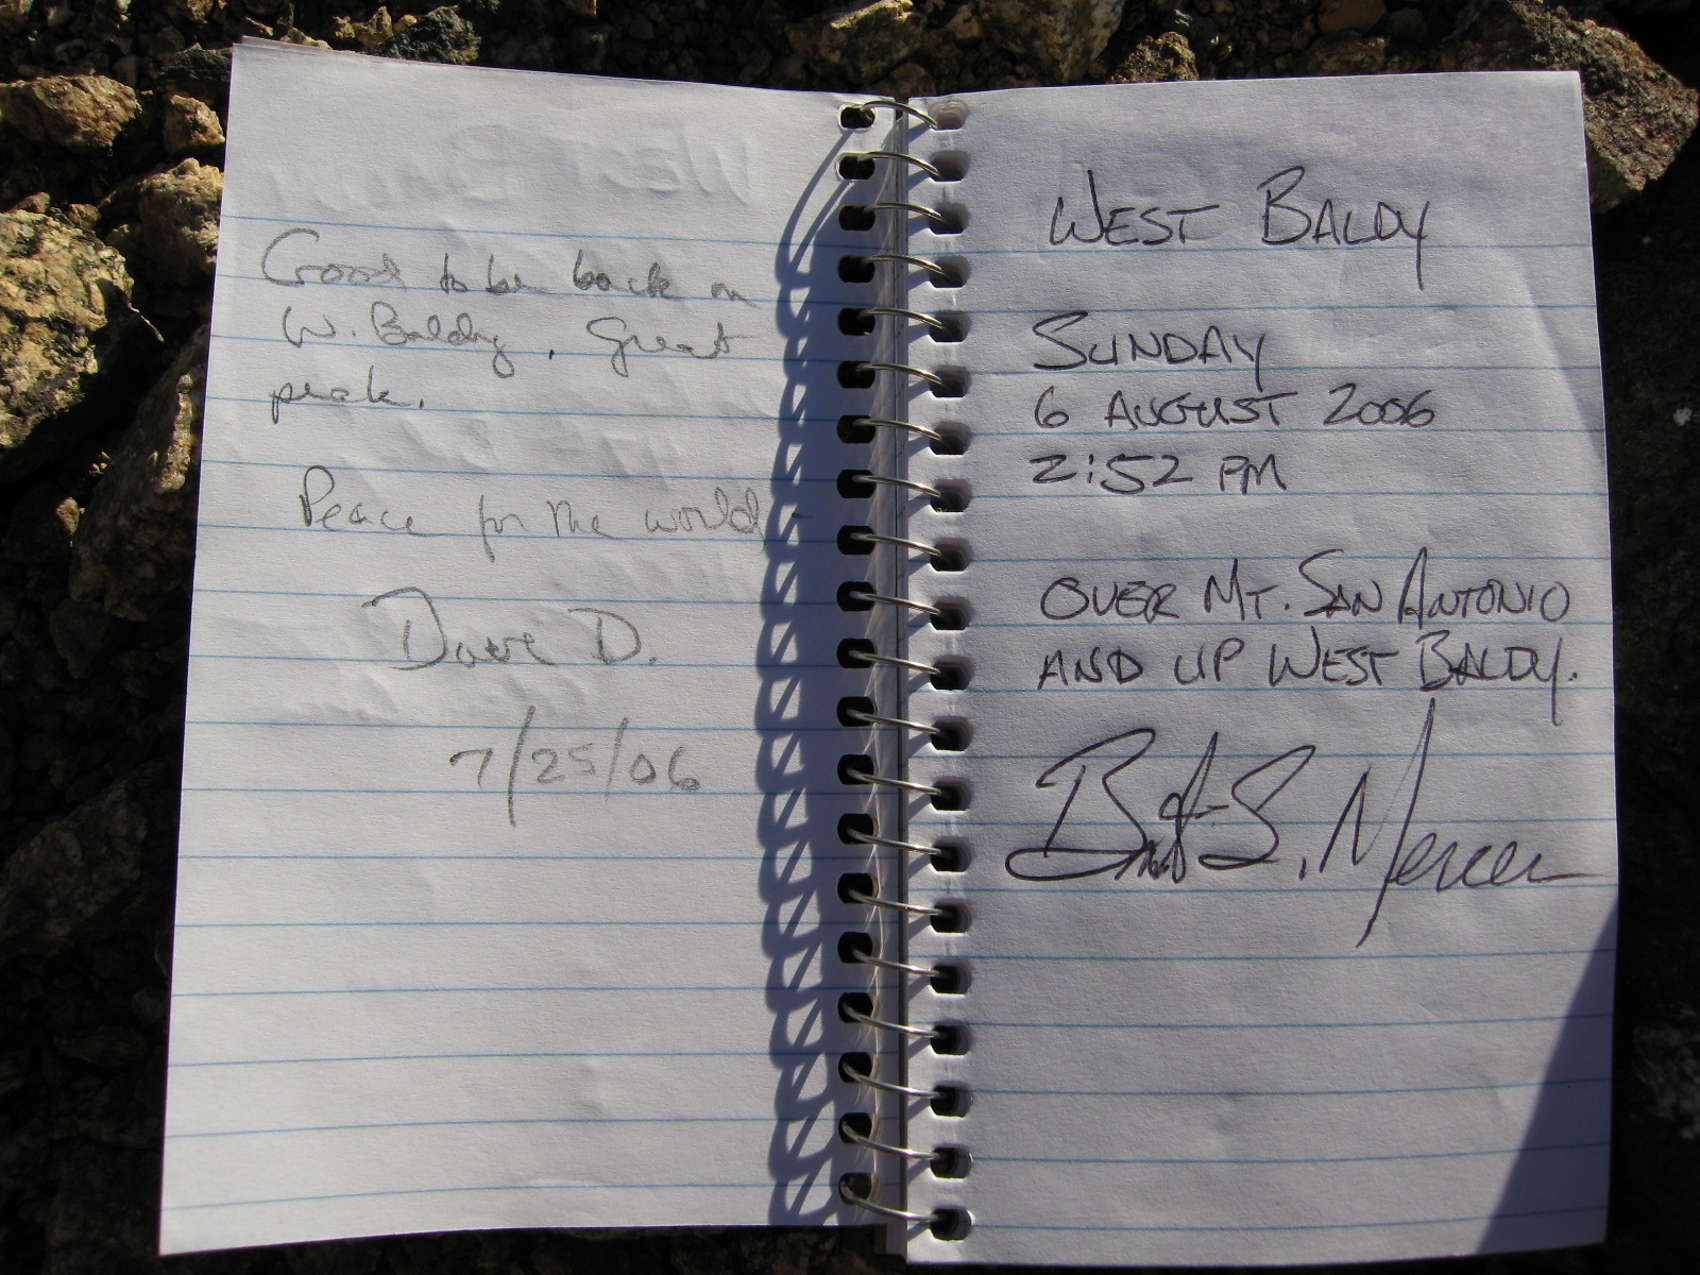 Good to be back on
W. Baldy. Great
peak.
Peace for the world
Dave D.
7/25/06
WEST BALDY
SUNDAY
6 AUGUST 2006
2:52 PM
OVER MT. SAN ANTONIO
AND UP WEST BALDY.
S. Mercer